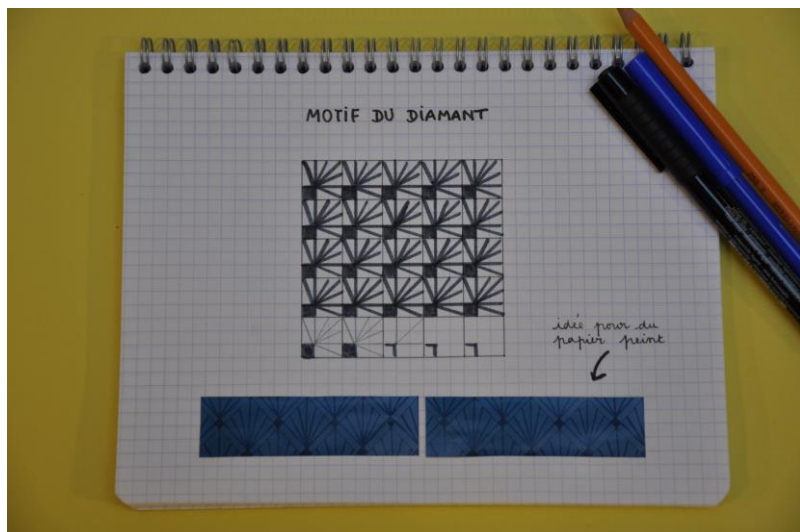 MOTIF DU DIAMANT
idée pour du
papier peint